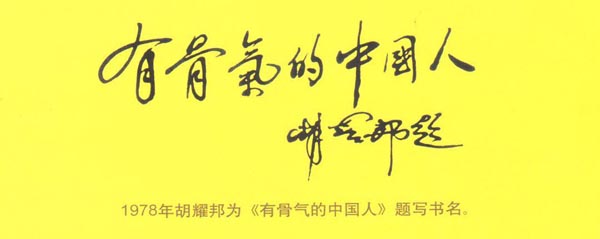 有骨氣的中國人
胡耀邦题
1978年胡耀邦为《有骨气的中国人》题写书名。